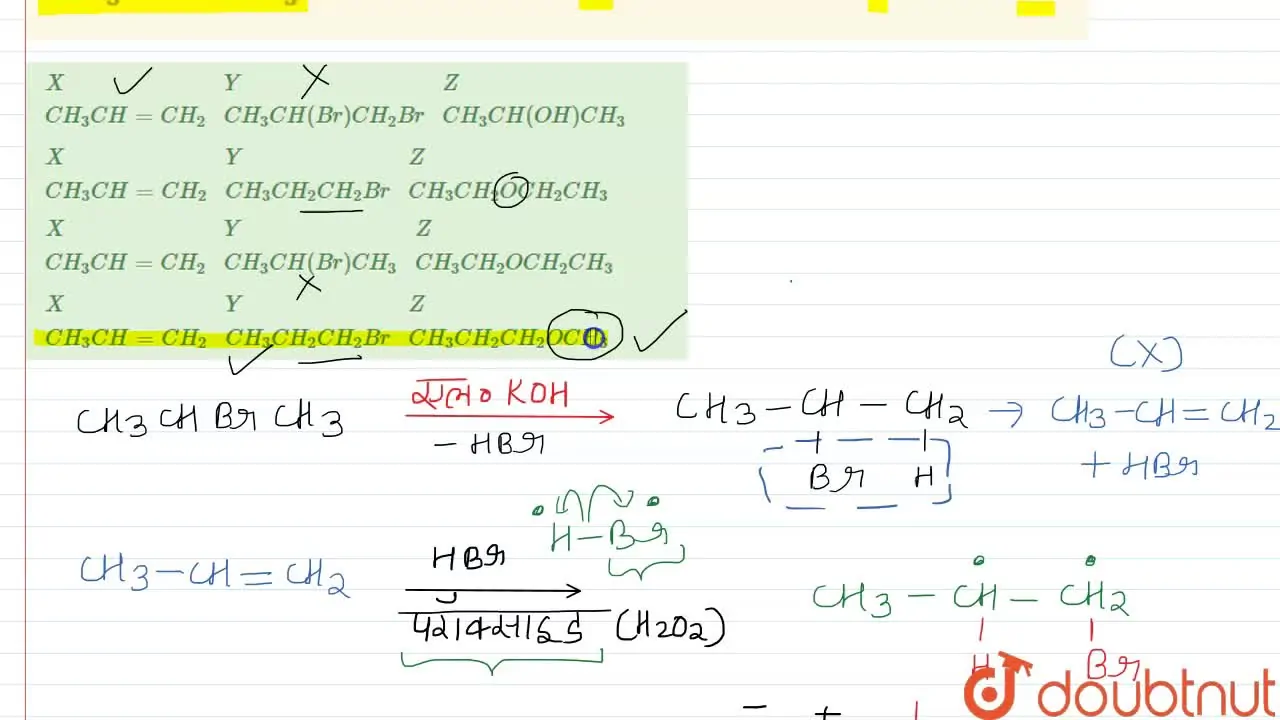 X Y Z
CH₃CH = CH₂ CH₃CH(Br)CH₂Br CH₃CH(OH)CH₃
X Y Z
CH₃CH = CH₂ CH₃CH₂CH₂Br CH₃CH₂OCH₂CH₃
X Y Z
CH₃CH = CH₂ CH₃CH(Br)CH₃ CH₃CH₂OCH₂CH₃
X Y Z
CH₃CH = CH₂ CH₃CH₂CH₂Br CH₃CH₂CH₂OCH₃
(X)
CH3 CH Br CH3 KOH CH3 – CH – CH2 → CH3 – CH = CH2
– HBr Br H + HBr
H – Br
CH3 – CH = CH2 HBr CH3 – CH – CH2
(H2O2)
H Br
– +
doubtnut